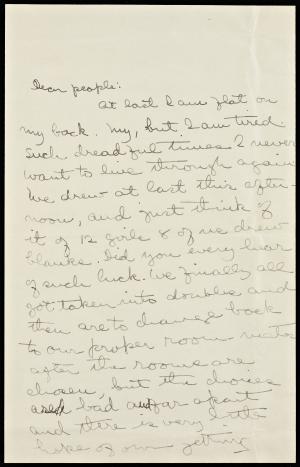 Dear people:
At last I am flat on
my back. My, but I am tired.
Such dreadful times I never
want to live through again.
We drew at last this after-
noon, and just think of
it of 12 girls 8 of us drew
blanks. Did you every hear
of such luck. We finally all
got taken into doubles and
then are to change back
to our proper room mates
after the rooms are
chosen, but the choices
are bad and far apart
and there is very little
hope of our getting